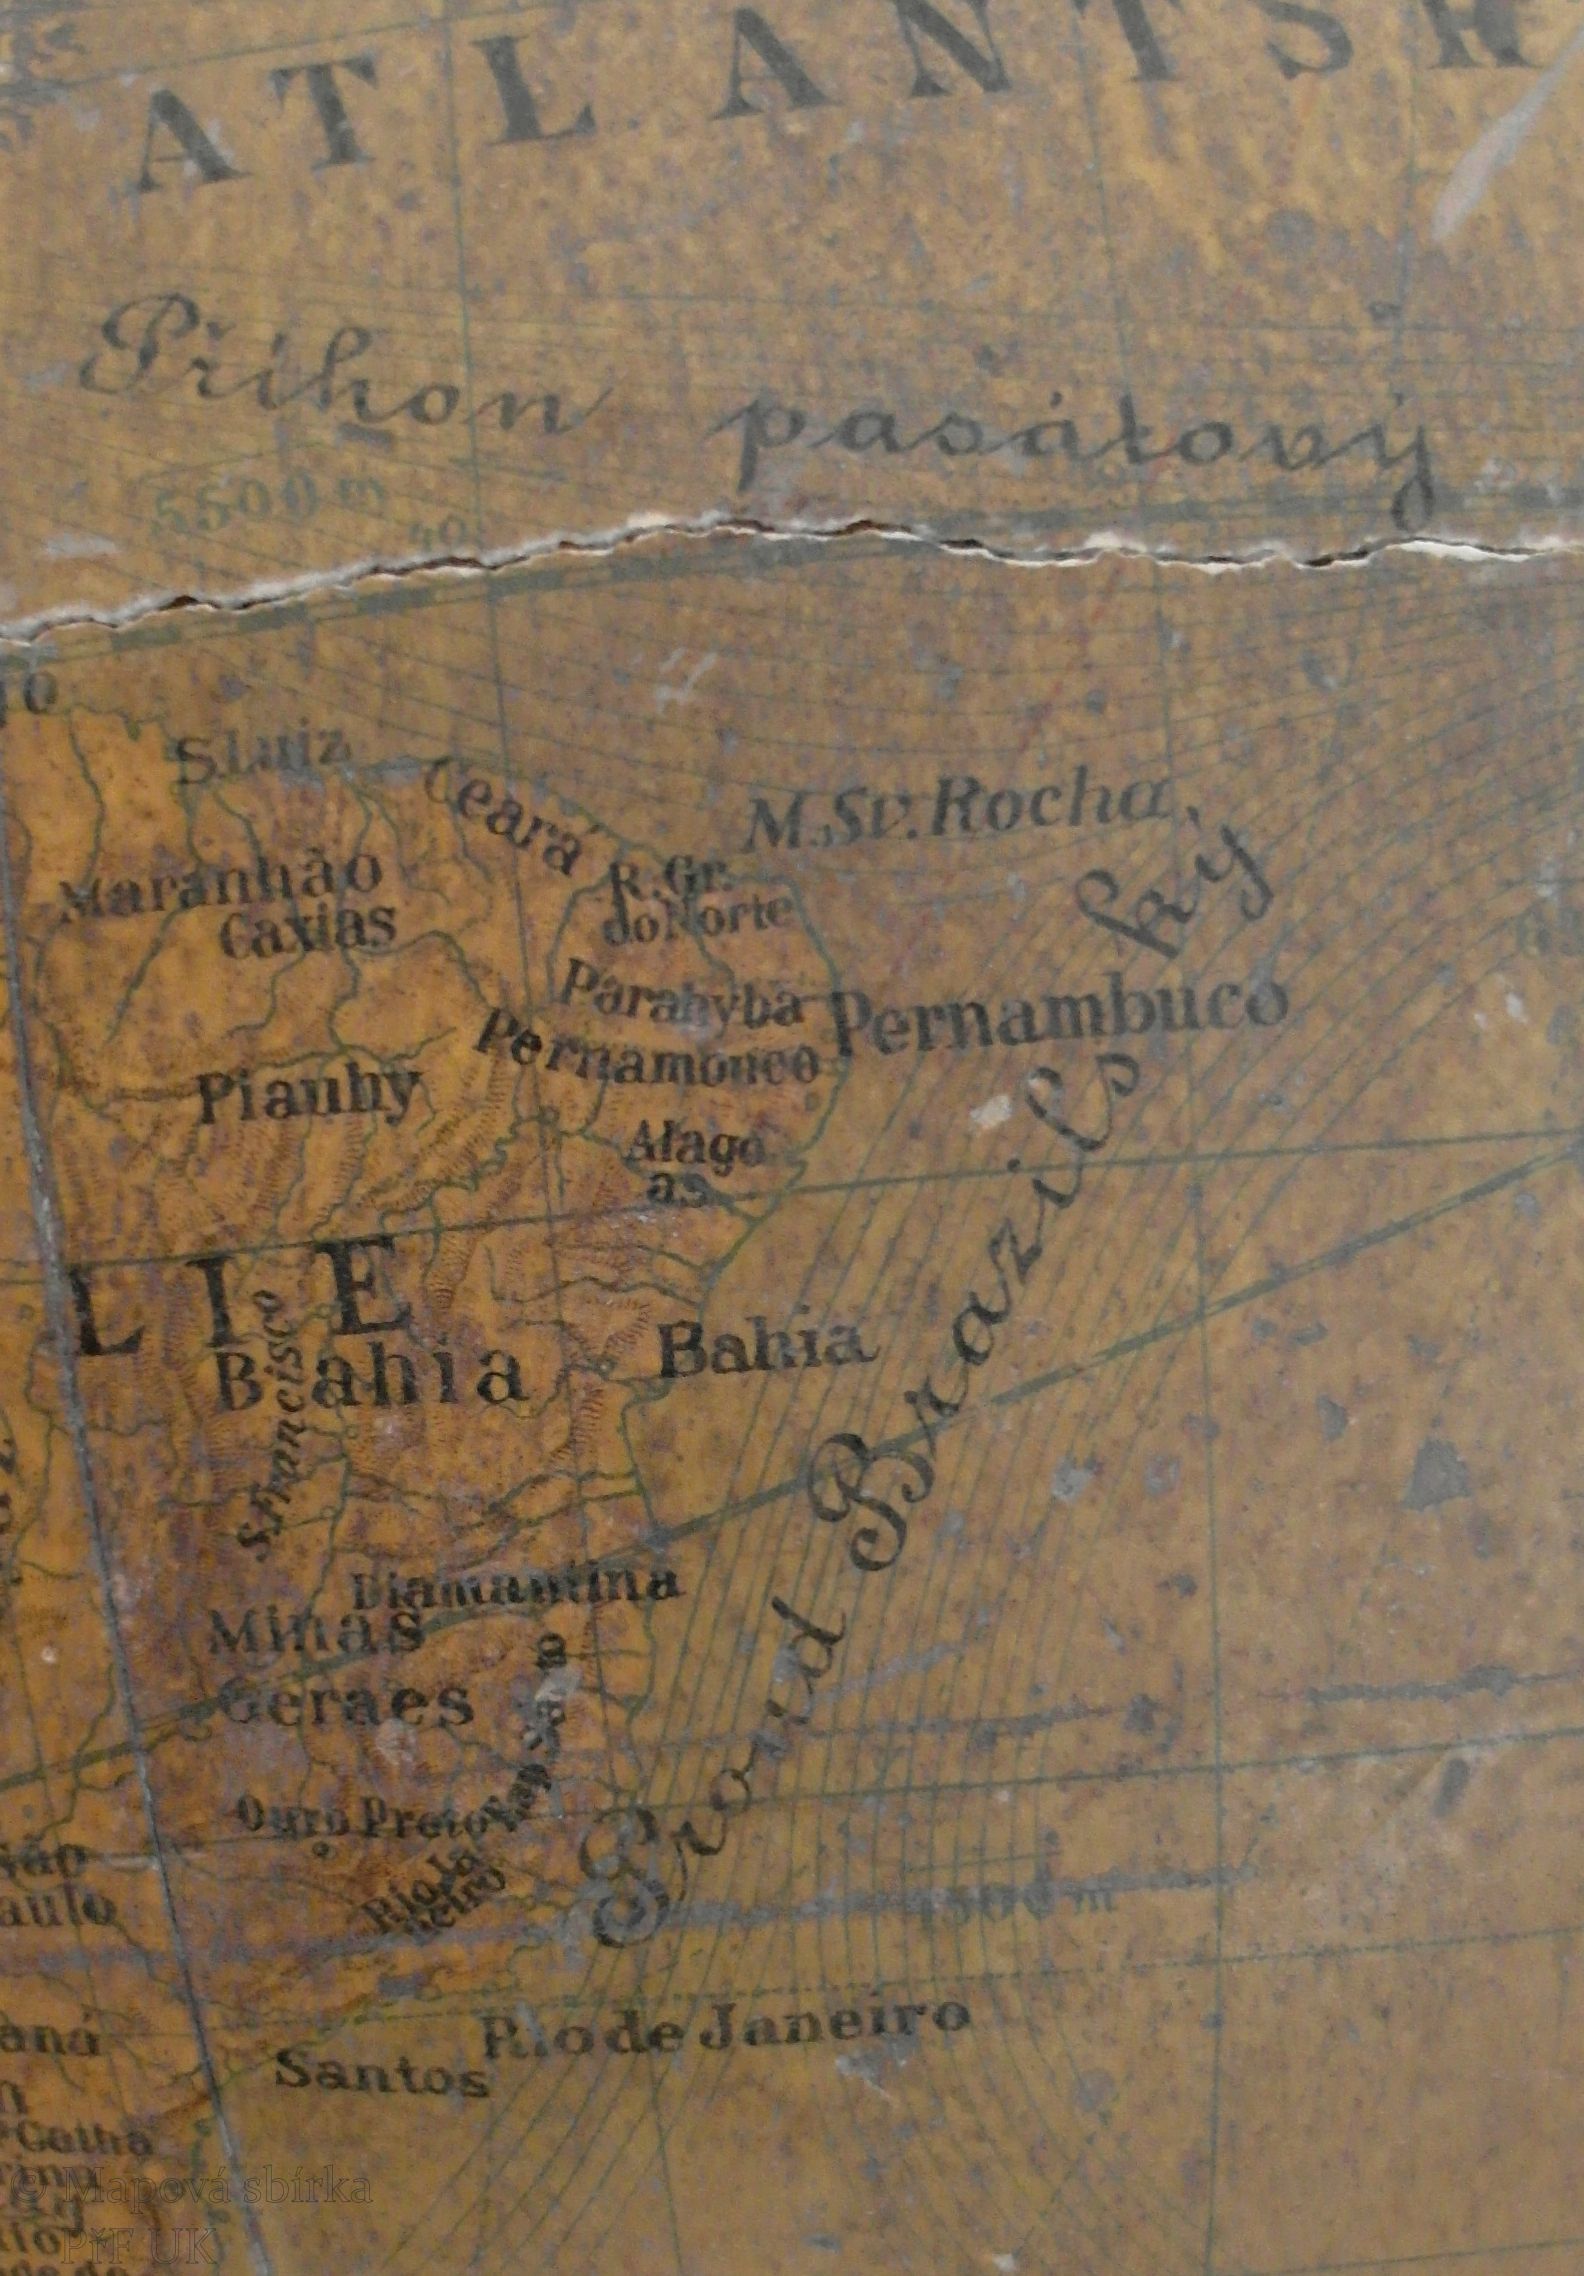 ATLANTSK
Příhon pasátový
5500 m
40
S. Luiz
Ceará
M. Sv. Rocha
R. Gr.
do Norte
Maranhão
Caxias
Parahyba
Pernambuco
Pernambuco
Piauhy
Alago
as
LIE
Bahia
Bahia
S. Francisco
Proud Brazilský
Diamantina
Minas
Geraes
Ouro Preto
Rio Ja
neiro
São
aulo
4500 m
Rio de Janeiro
Santos
aná
Catha
rina
© Mapová sbírka
PřF UK